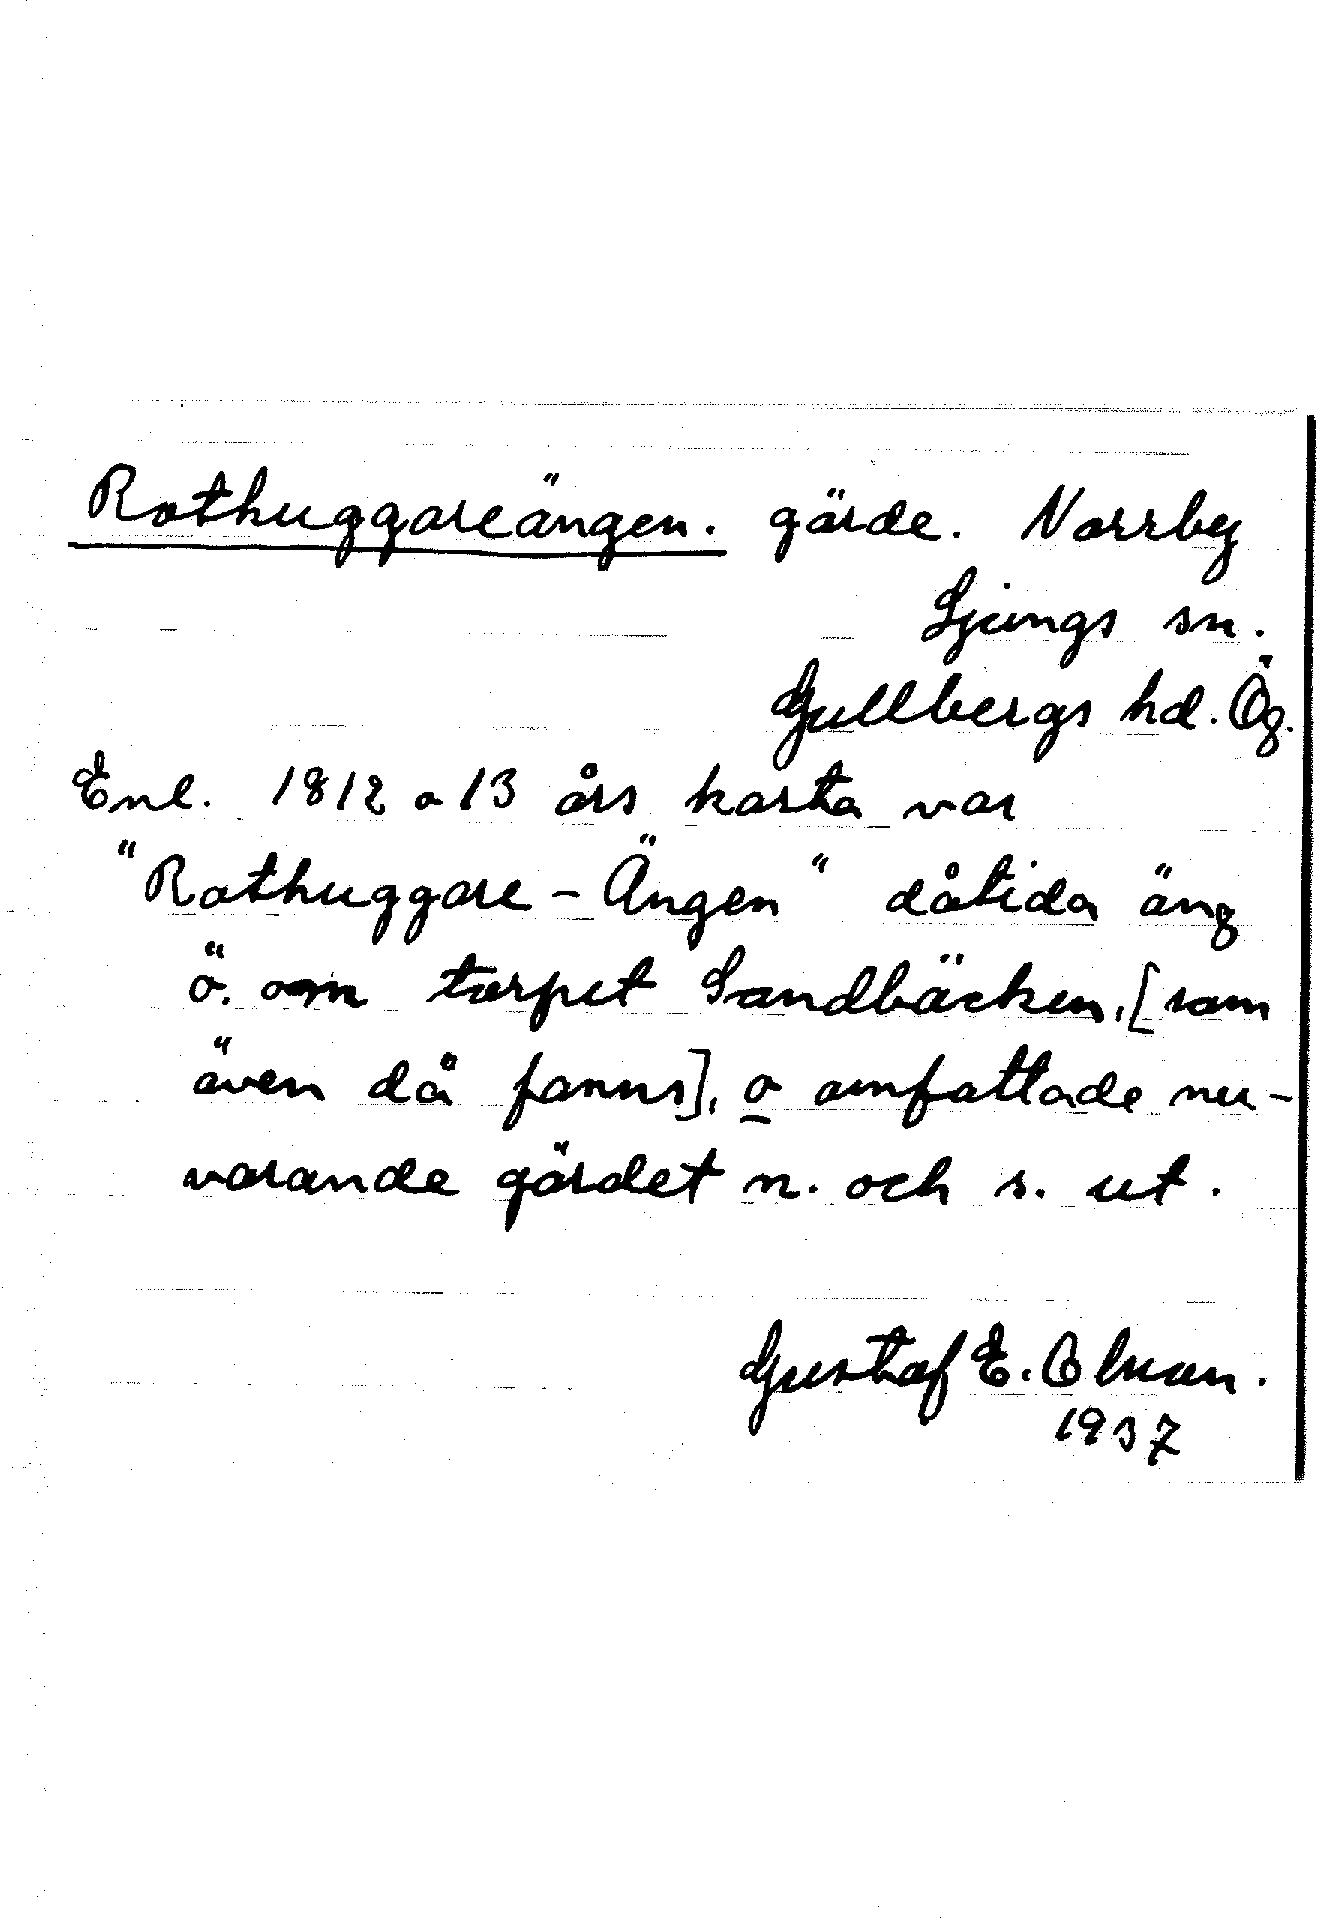 Rothuggareängen. gärde. Norrby
Ljungs sn.
Gullbergs hd. Ög.
Enl. 1812 o 13 års karta var
"Rothuggare - Ängen" dåtida äng
ö. om torpet Sandbäcken, [som
även då fanns], o omfattade nu-
varande gärdet n. och s. ut.
Gustaf E. Olman.
1937